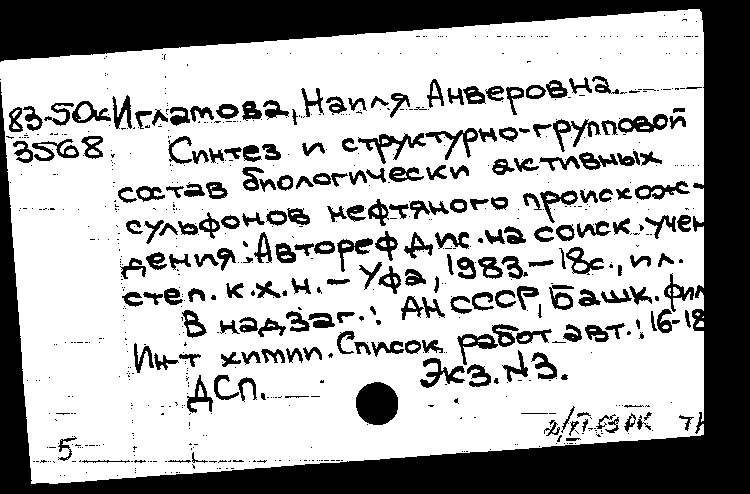 83-50к Игламова, Наиля Анверовна.
3568 Синтез и структурно-групповой
состав биологически активных
сульфонов нефтяного происхож-
дения: Автореф. дис. на соиск. учен
степ. к.х.н. - Уфа, 1983. - 18с., ил.
В надзаг.: АН СССР, Башк. фил
Ин-т химии. Список работ авт.: 16-18
ДСП. Экз. N3.
2/XI-83 РК ТК
5